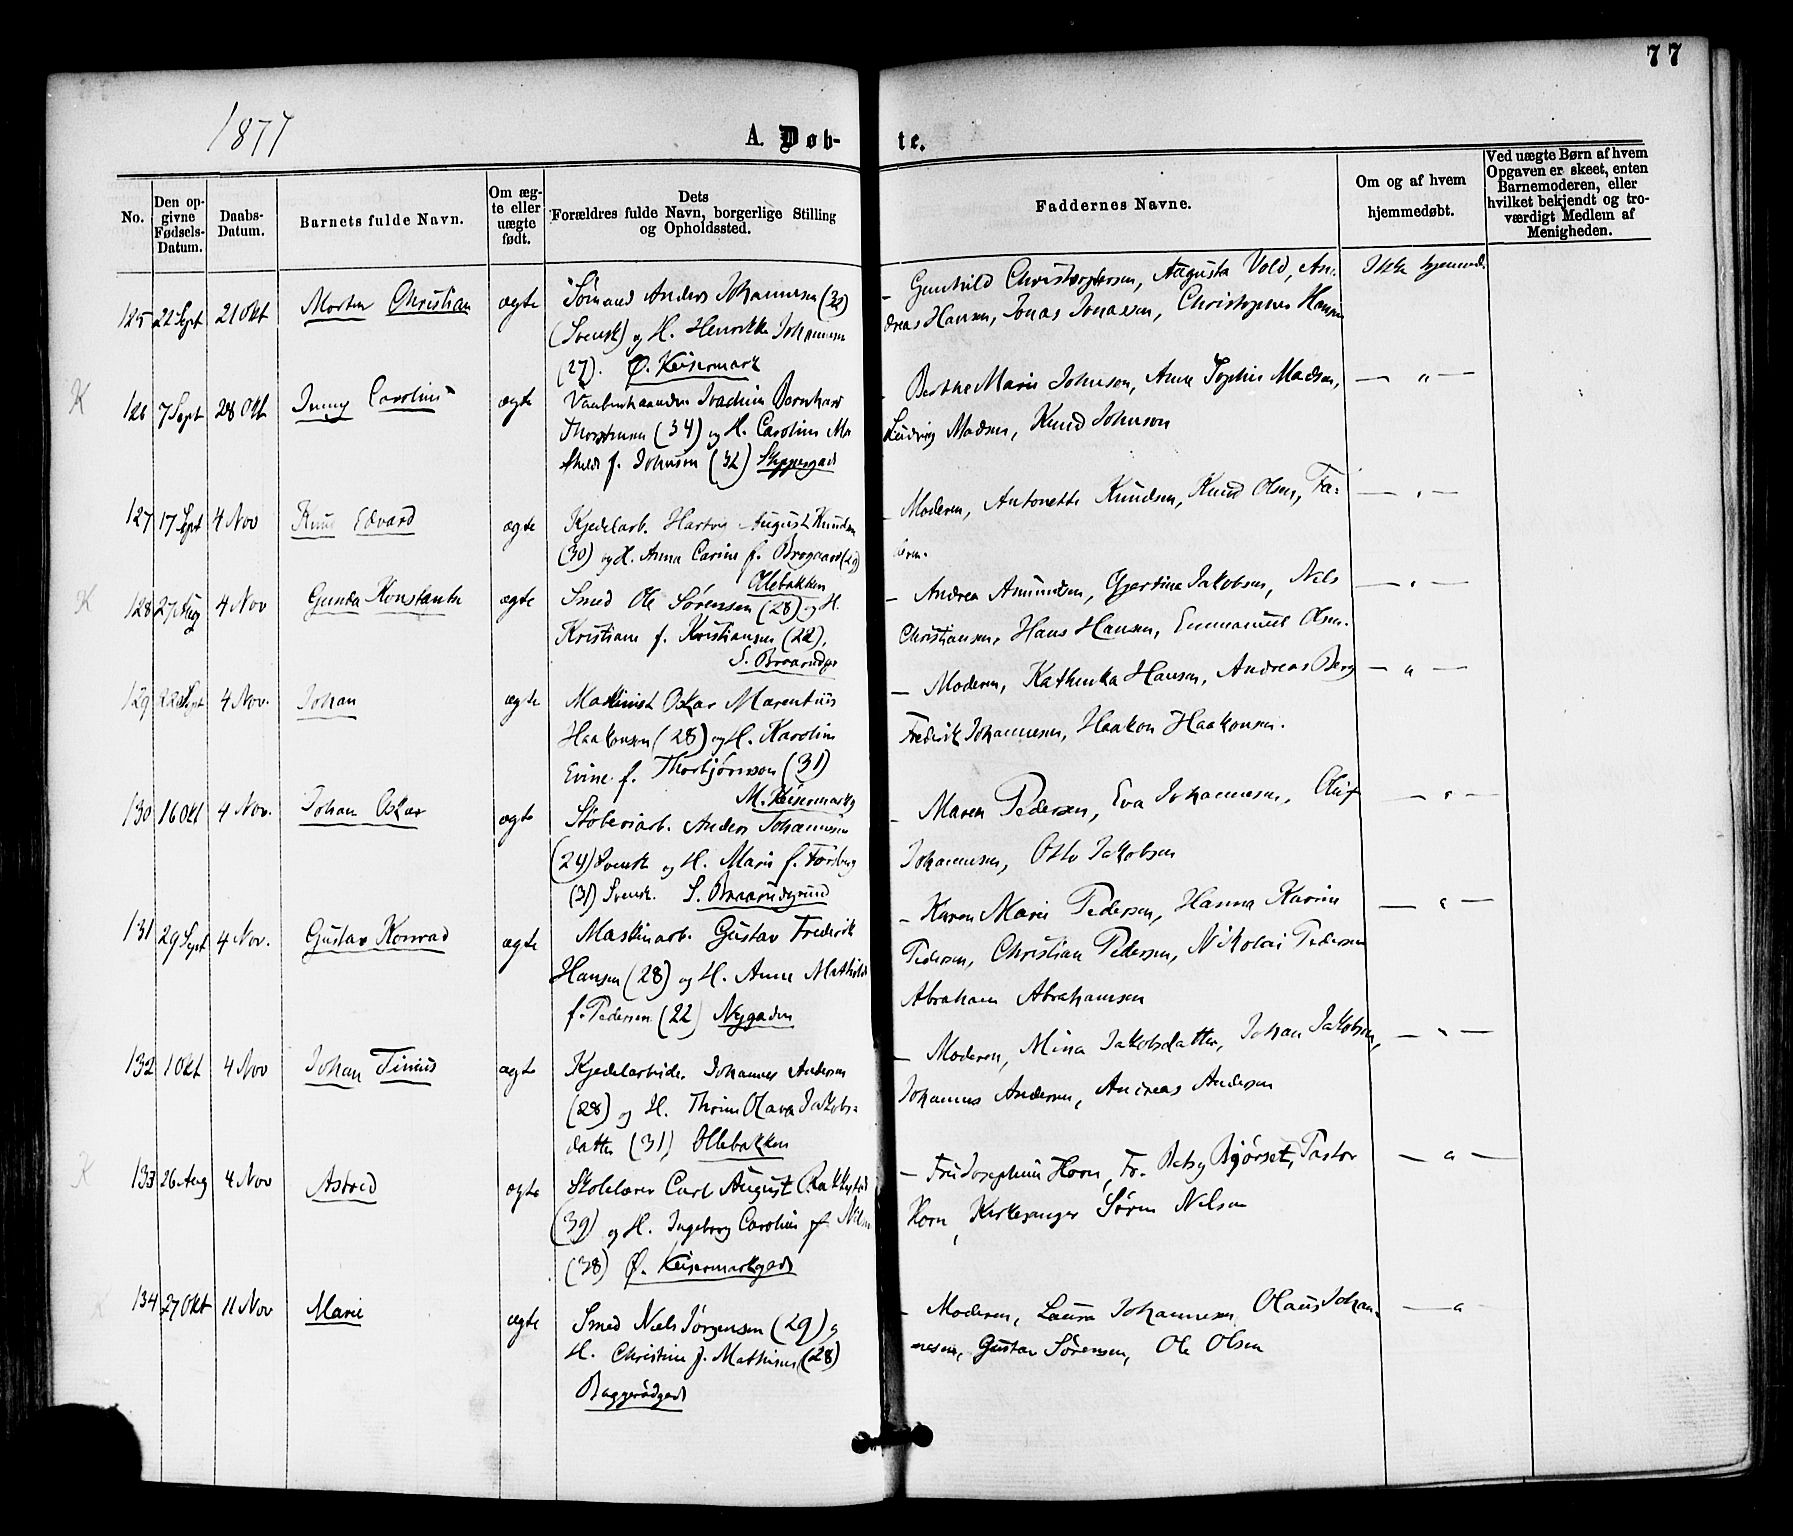 77
1877
A. Døb-
te.
No.
Den op-
givne
Fødsels-
Datum.
Daabs-
Datum.
Barnets fulde Navn.
Om æg-
te eller
uægte
født.
Dets
Forældres fulde Navn, borgerlige Stilling
og Opholdssted.
Faddernes Navne.
Om og af hvem
hjemmedøbt.
Ved uægte Børn af hvem
Opgaven er skeet, enten
Barnemoderen, eller
hvilket bekjendt og tro-
værdigt Medlem af
Menigheden.
125 22 Sept 21 Okt Morten Christian ægte Sømand Anders Johannesen (32)
(Svensk) og H. Henrikke Johannesen
(27). Ø. Keisermark
– Gunhild Christophersen, Augusta Vold, An-
dreas Hansen, Jonas Jonassen, Christopher Hansen
Ikke hjemmed.
K 126 7 Sept 28 Okt Jenny Caroline ægte Joachim Bernhard
Thorstensen (34) og H. Caroline Ma
thilde f. Johnsen (32) Skippergad
– Berthe Marie Johnson, Anne Sophie Madsen,
Ludvig Madsen, Knud Johnson
— " —
127 17 Sept 4 Nov Knud Edvard ægte Kjedelarb. Hartvig August Knudsen
(30) og H. Anna Carine f. Brogaard (29)
Ollebakken
– Moderen, Antonette Knudsen, Knud Olsen, Fa-
deren.
— " —
K 128 27 Aug 4 Nov Gunda Konstanse ægte Smed Ole Sørenssen (28) og H.
Kristiane f. Kristiansen (22),
S. Braarudgr
– Andrea Amundsen, Gjertine Jakobsen, Nils
Christiansen, Hans Hansen, Emmanuel Olsen.
— " —
129 22 Sept 4 Nov. Johan ægte Maskinist Oskar Marentius
Haakonsen (28) og H. Karoline
Evine f. Thorbjørnsen (31)
M. Keisermarkg
– Moderen, Kathinka Hansen, Andreas Berg
Frederik Johannesen, Haakon Haakonsen.
— " —
130 16 Okt 4 Nov. Johan Oskar ægte Støberiarb. Anders Johannesen
(24) Svensk og H. Marie f. Forsberg
(31) Svensk. S. Braarudgrund
– Maren Pedersen, Eva Johannesen, Oluf
Johannesen, Otto Jakobsen
— " —
131 29 Sept 4 Nov. Gustav Konrad ægte Maskinarb. Gustav Frederik
Hansen (28) og H. Anne Mathilde
f. Pedersen (22) Nygaden
– Karen Marie Pedersen, Hanna Karine
Pedersen, Christian Pedersen, Nikolai Pedersen
Abraham Abrahamsen
— " —
132 1 Okt 4 Nov Johan ægte Kjedelarbeide. Johannes Andersen
(28) og H. Thrine Olava Jakobs-
datter (31) Ollebakken
– Moderen, Mina Jakobsdatter, Johan Jakobsen,
Johannes Andersen, Andreas Andersen
— " —
K 133 26 Aug 4 Nov Astrid ægte Skolelærer Carl August Rakkestad
(39) og H. Ingeborg Caroline f. Nilsen
(38) Ø. Keisermarkgad
– Fru Josephine Horn, Fr. Betsy Bjørset, Pastor
Horn, Kirkesanger Søren Nilsen
— " —
K 134 27 Okt 11 Nov Marie ægte Smed Niels Jørgensen (29) og
H. Christine f. Mathisen (28)
Baggerødgad
– Moderen, Laura Johannesen, Olaus Johan-
nesen, Gustav Sørensen, Ole Olsen
— " —